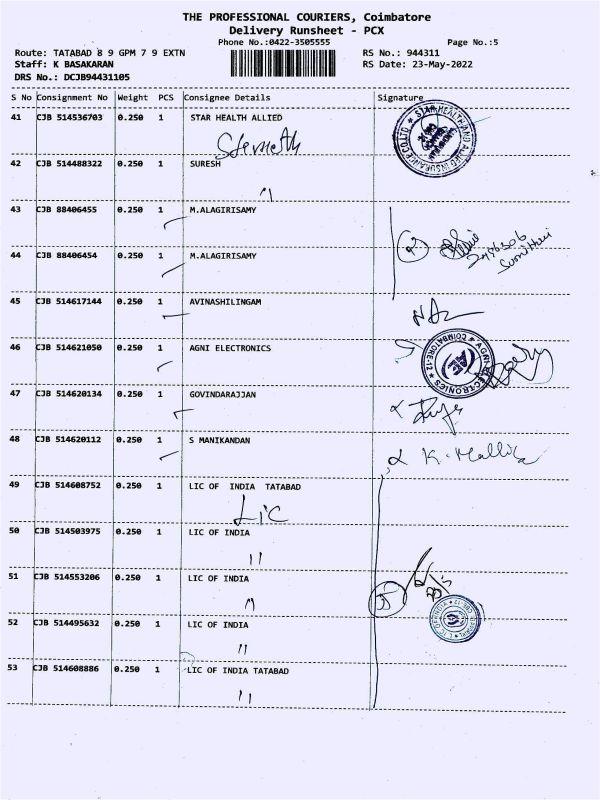 THE PROFESSIONAL COURIERS, Coimbatore
Delivery Runsheet - PCX
Phone No.:0422-3505555 Page No.:5
Route: TATABAD 8 9 GPM 7 9 EXTN RS No.: 944311
Staff: K BASAKARAN RS Date: 23-May-2022
DRS No.: DCJB94431105
S No Consignment No Weight PCS Consignee Details Signature
41 CJB 514536703 0.250 1 STAR HEALTH ALLIED
STAR HEALTH AND ALLIED INSURANCE CO.LTD
42 CJB 514488322 0.250 1 SURESH
43 CJB 88406455 0.250 1 M.ALAGIRISAMY
44 CJB 88406454 0.250 1 M.ALAGIRISAMY
45 CJB 514617144 0.250 1 AVINASHILINGAM
46 CJB 514621050 0.250 1 AGNI ELECTRONICS
AGNI ELECTRONICS COIMBATORE-12
47 CJB 514620134 0.250 1 GOVINDARAJJAN
48 CJB 514620112 0.250 1 S MANIKANDAN
K. Mallika
49 CJB 514608752 0.250 1 LIC OF INDIA TATABAD
LIC
50 CJB 514503975 0.250 1 LIC OF INDIA
11
51 CJB 514553206 0.250 1 LIC OF INDIA
52 CJB 514495632 0.250 1 LIC OF INDIA
11
53 CJB 514608886 0.250 1 LIC OF INDIA TATABAD
11